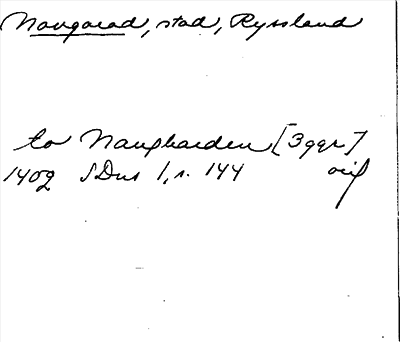 Novgorod, stad, Ryssland
to Naugharden [3 ggr]
1409 SDns 1, s. 144 orig